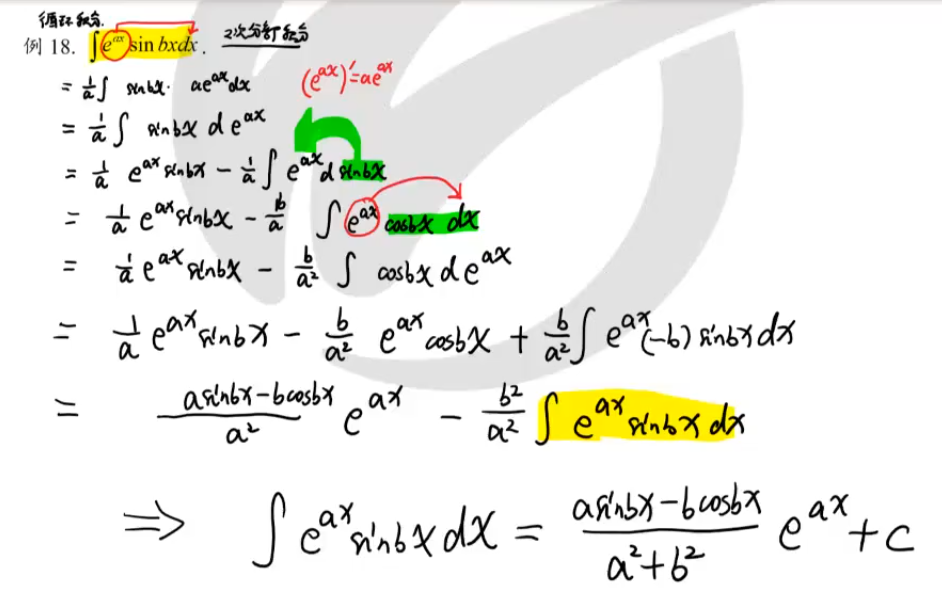 循环积分.
例 18. ∫e^{ax} sin bxdx. 2次分部积分
= 1/a ∫ sinbx · ae^{ax}dx (e^{ax})'=ae^{ax}
= 1/a ∫ sinbx d e^{ax}
= 1/a e^{ax} sinbx - 1/a ∫ e^{ax} d sinbx
= 1/a e^{ax} sinbx - b/a ∫ e^{ax} cosbx dx
= 1/a e^{ax} sinbx - b/a² ∫ cosbx d e^{ax}
= 1/a e^{ax} sinbx - b/a² e^{ax} cosbx + b/a² ∫ e^{ax}(-b) sinbx dx
= (asinbx-bcosbx)/a² e^{ax} - b²/a² ∫ e^{ax} sinbx dx
⇒ ∫ e^{ax} sinbx dx = (asinbx-bcosbx)/(a²+b²) e^{ax} + c